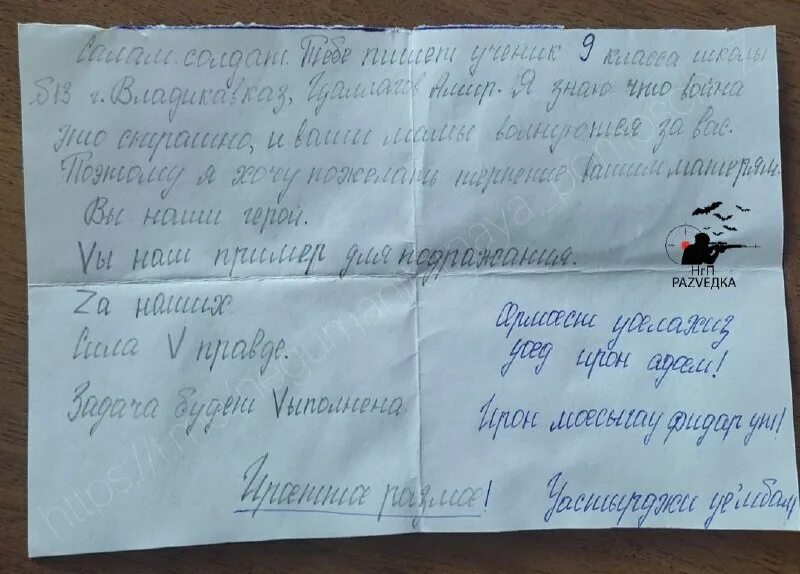 Салам солдат. Тебе пишет ученик 9 класса школы
№13 г. Владикавказ, Цаллагов Амир. Я знаю что война
это страшно, и ваши мамы волнуются за вас.
Поэтому я хочу пожелать терпение вашим матерям.
Вы наши герой.
Vы наш пример для подражания.
Zа наших.
Сила V правде.
Задача будет Vыполнена.
Ирæттæ размæ!
Фæрнæй уæлахиз
уæд ирон адæм!
Ирон мæсычау фидар ут!
Уастырджи уе'мбал
НгП
PAZVEДКА